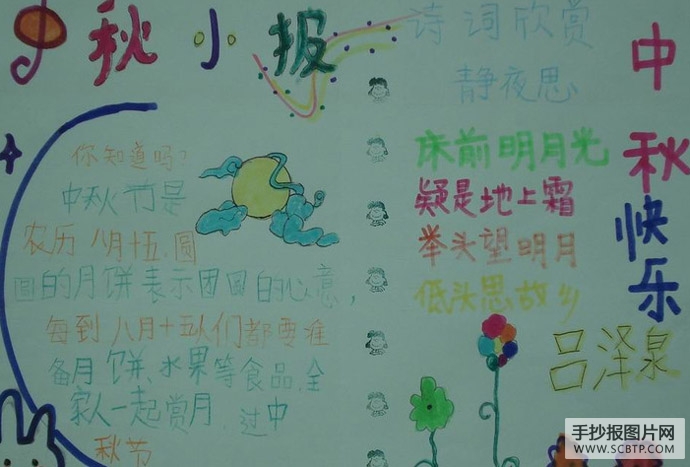 中秋小报
你知道吗?
中秋节是
农历八月十五.圆
圆的月饼表示团圆的心意，
每到八月十五人们都要准
备月饼、水果等食品,全
家人一起赏月,过中
秋节
诗词欣赏
静夜思
床前明月光
疑是地上霜
举头望明月
低头思故乡
中秋快乐
吕泽泉
手抄报图片网
WWW.SCBTP.COM